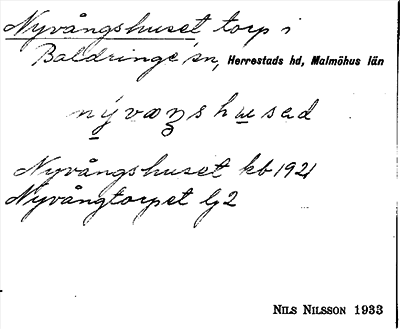 Nyvångshuset torp i
Baldringe sn, Herrestads hd, Malmöhus län
Nyvångshuset kb 1921
Nyvångtorpet
NILS NILSSON 1933